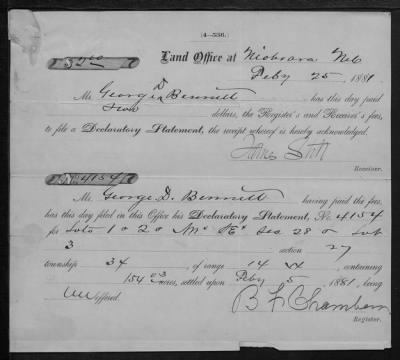 (4—536.)
$2.00 Land Office at Niobrara Neb
Feby 25, 1881
Mr. George D Bennett has this day paid
two dollars, the Register's and Receiver's fees,
to file a Declaratory Statement, the receipt whereof is hereby acknowledged.
James Stott
Receiver.
No 4154
Mr. George D. Bennett having paid the fees,
has this day filed in this Office his Declaratory Statement, No. 4154
for Lots 1 & 2 & Sec 28 & Lot
3 section 27
township 34, of range 14 W, containing
154 23 acres, settled upon Feby 5, 1881, being
offered.
B F Chambers
Register.